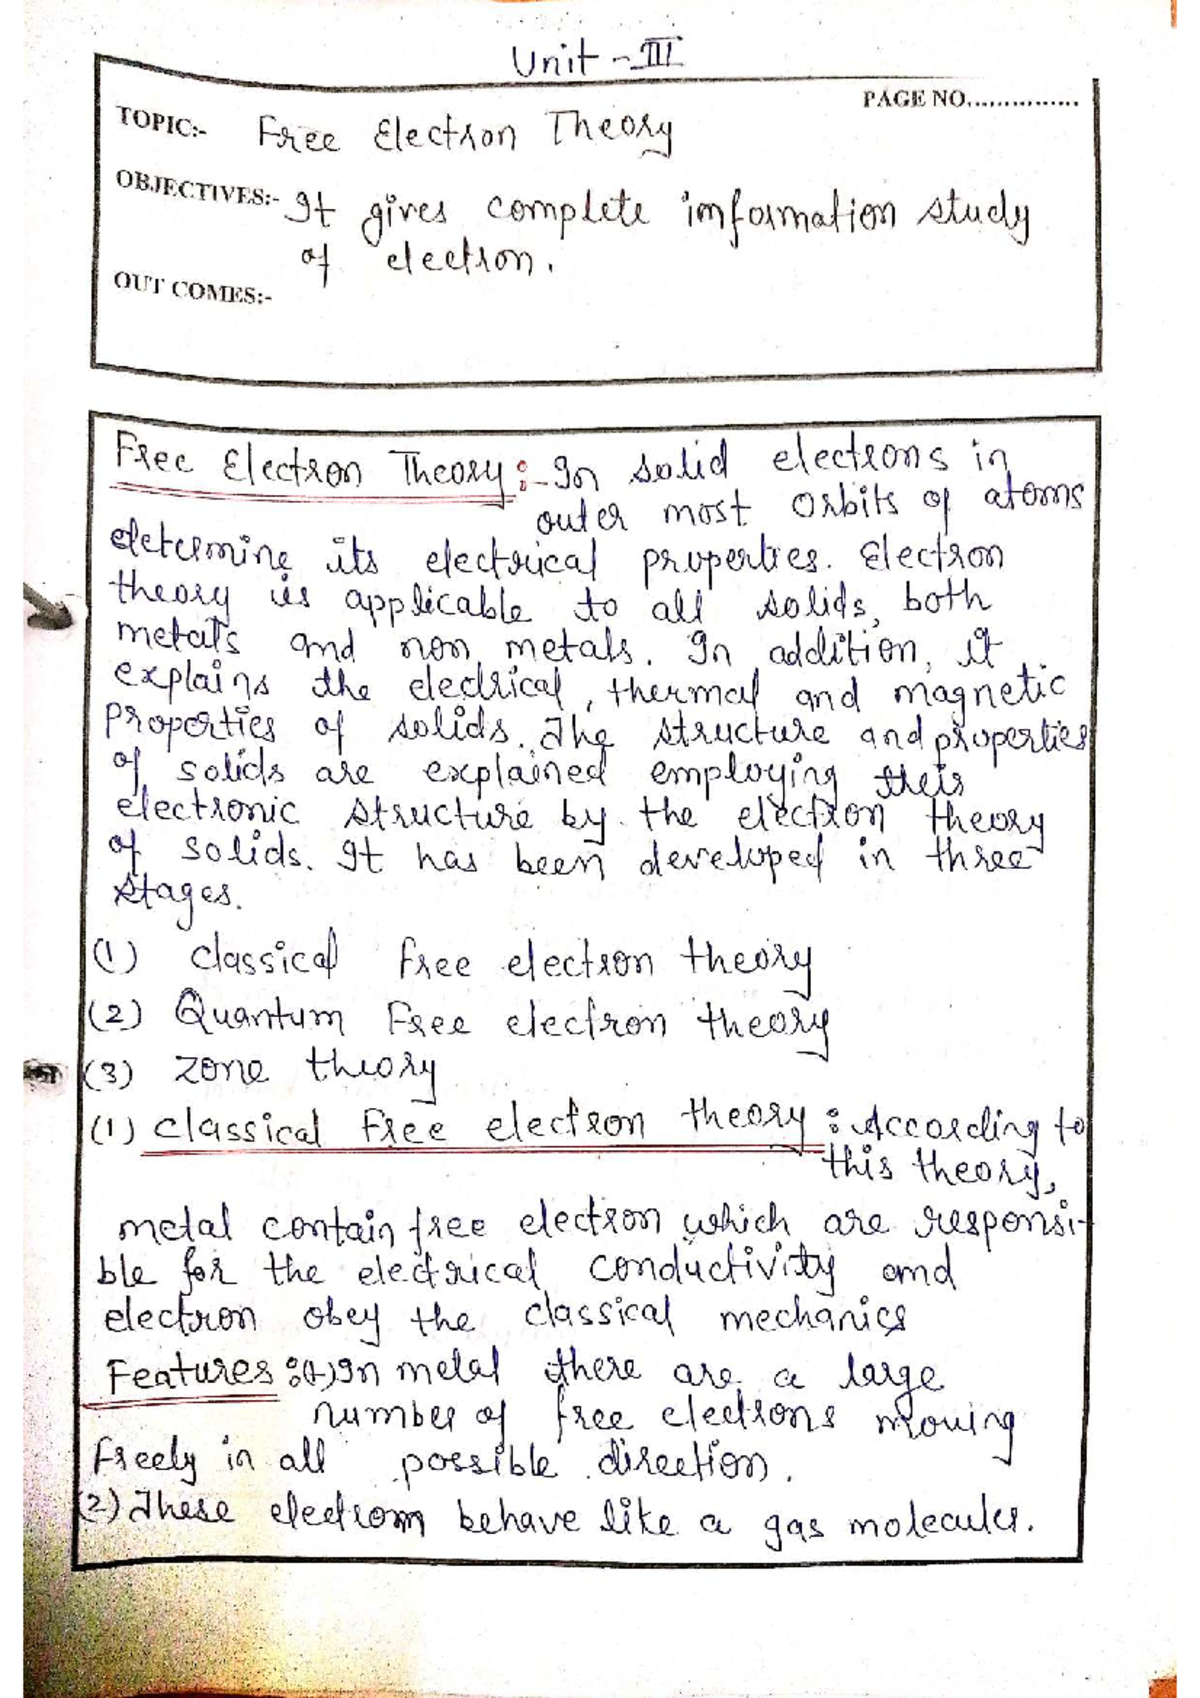 Unit - III
PAGE NO...............
TOPIC:- Free Electron Theory
OBJECTIVES:- It gives complete information study
of electron.
OUT COMES:-
Free Electron Theory :- In solid electrons in
outer most orbits of atoms
determine its electrical properties. Electron
theory is applicable to all solids, both
metals and non metals. In addition, it
explains the electrical, thermal and magnetic
properties of solids. The structure and properties
of solids are explained employing their
electronic structure by the electron theory
of solids. It has been developed in three
stages.
(1) classical free electron theory
(2) Quantum Free electron theory
(3) zone theory
(1) classical free electron theory : According to
this theory,
metal contain free electron which are responsi-
ble for the electrical conductivity and
electron obey the classical mechanics
Features : (1) In metal there are a large
number of free electrons moving
freely in all possible direction.
(2) These electrom behave like a gas molecules.